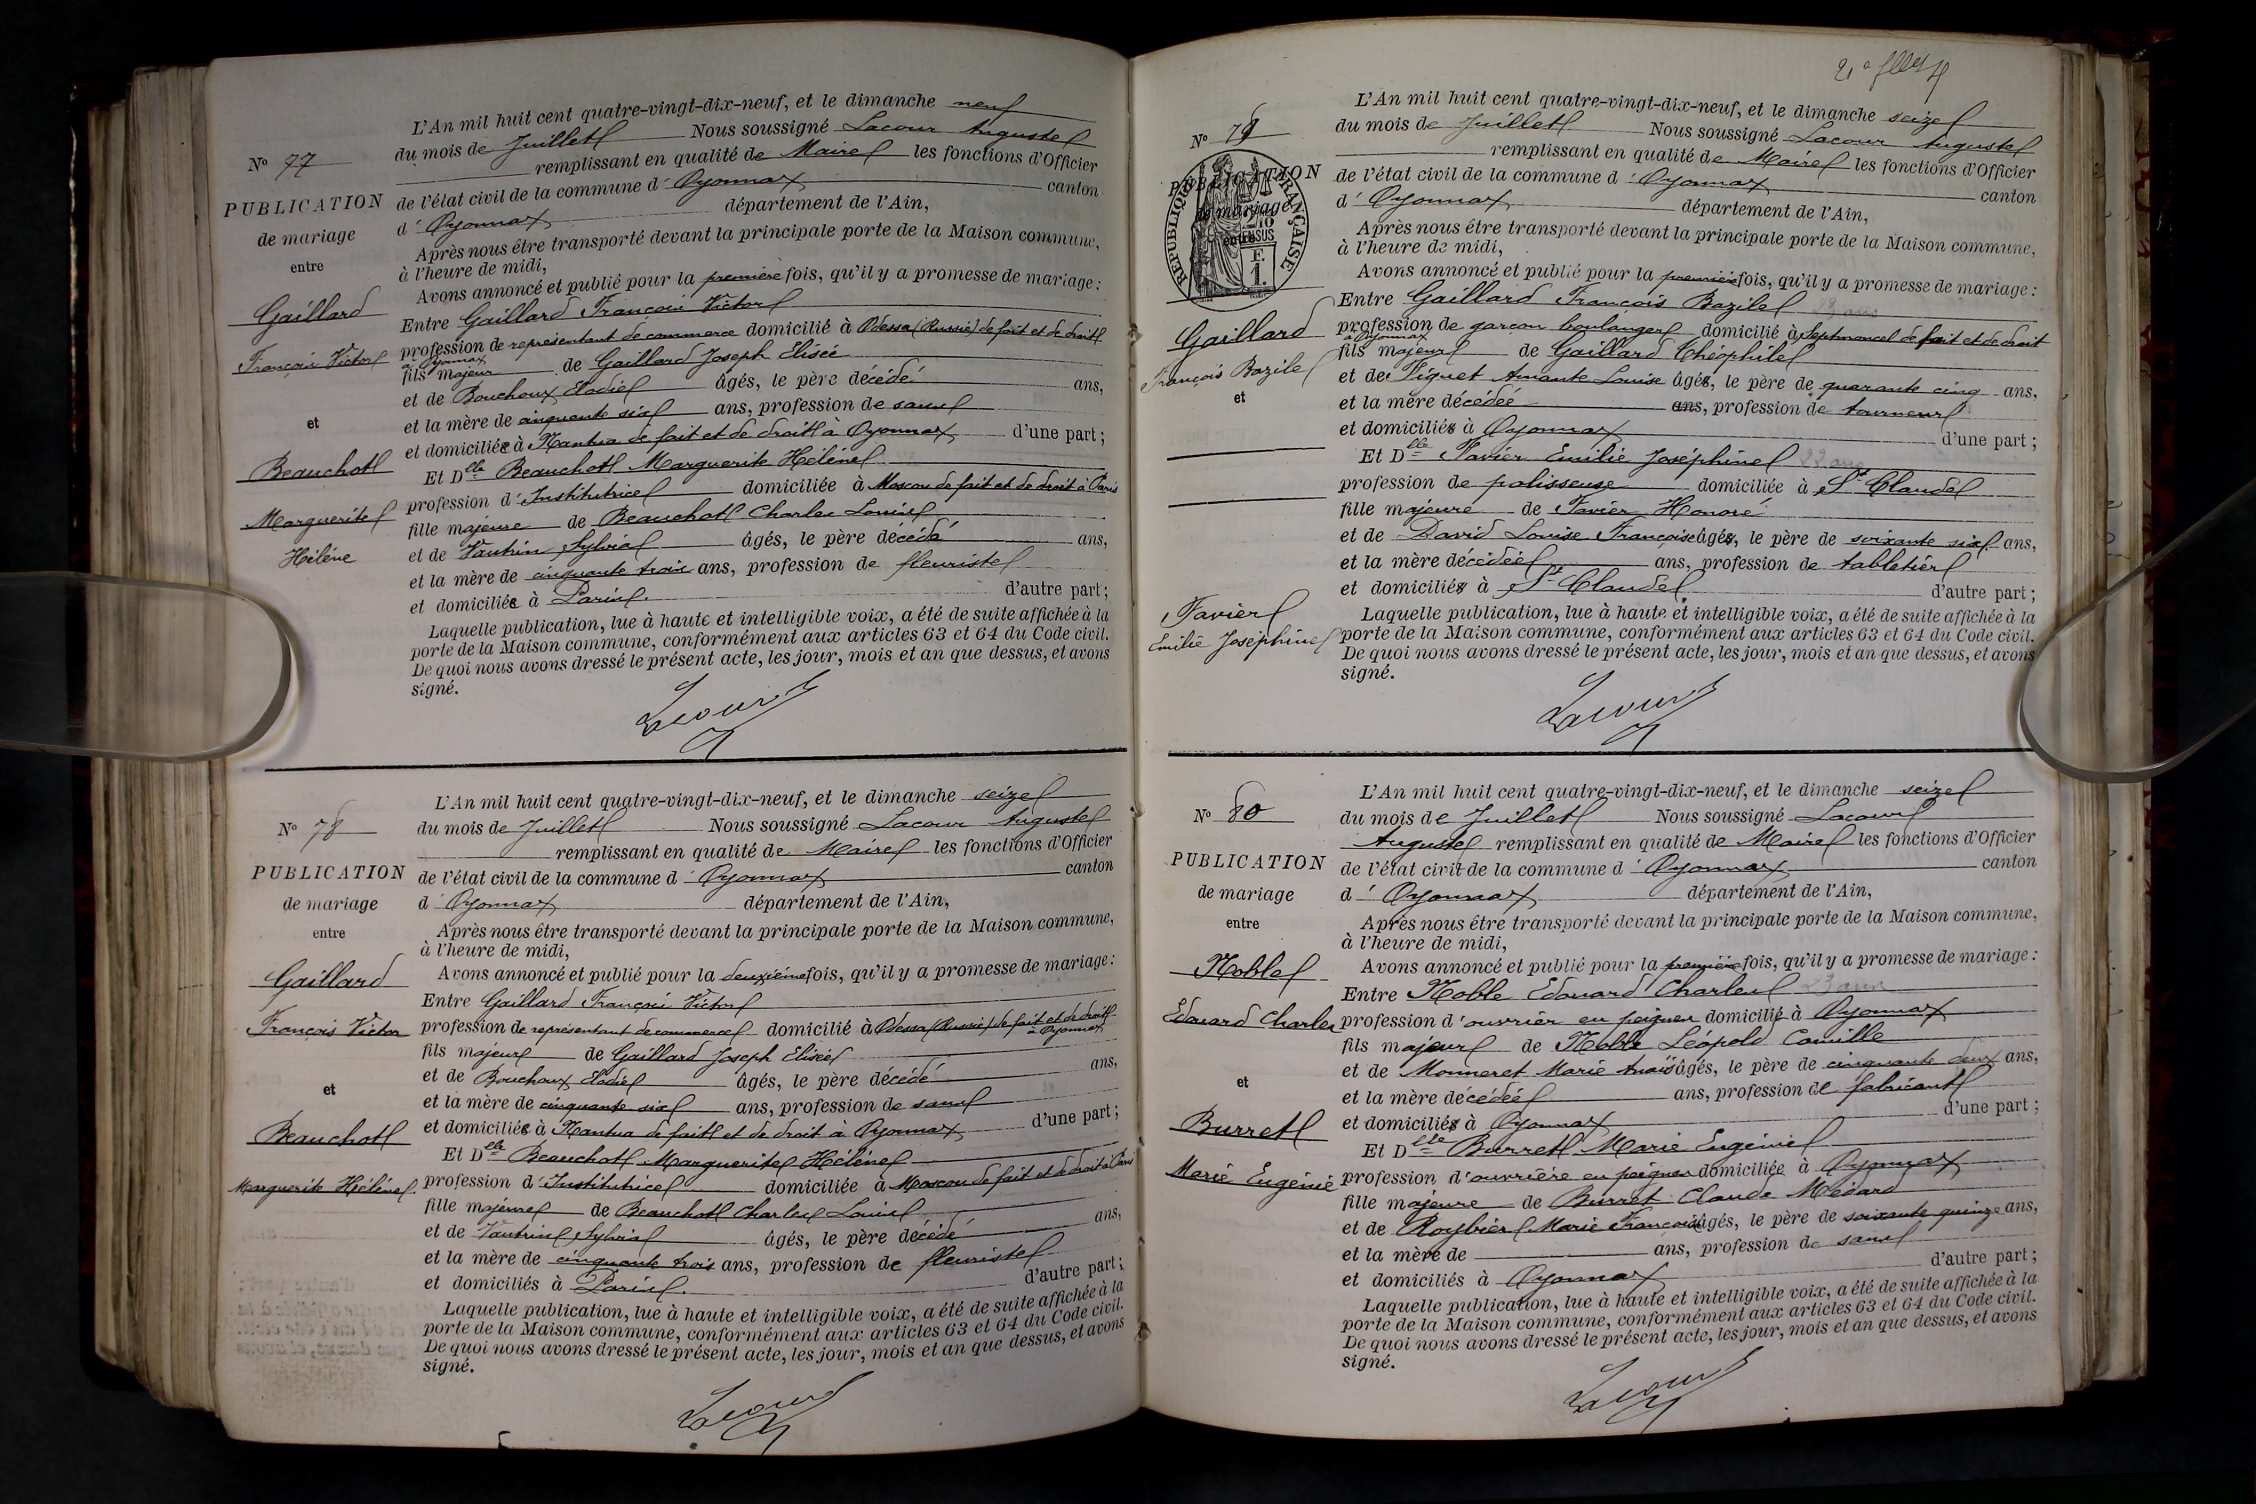 L'An mil huit cent quatre-vingt-dix-neuf, et le dimanche neuf
du mois de Juillet Nous soussigné Lacour Auguste
N° 77
remplissant en qualité de Maire les fonctions d'Officier
PUBLICATION
de l'état civil de la commune d'Oyonnax canton
d'Oyonnax département de l'Ain,
de mariage
Après nous être transporté devant la principale porte de la Maison commune,
entre
à l'heure de midi,
Avons annoncé et publié pour la première fois, qu'il y a promesse de mariage :
Gaillard
Entre Gaillard François Victor
profession de représentant de commerce domicilié à Odessa (Russie) de fait et de droit
François Victor
à Oyonnax
fils majeur de Gaillard Joseph Elisée
et de Bouchoux Elodie âgés, le père décédé ans,
et
et la mère de cinquante six ans, profession de sans
et domiciliée à Nantua de fait et de droit à Oyonnax d'une part ;
Beauchot
Et Dlle Beauchot Marguerite Hélène
profession d'Institutrice domiciliée à Moscou de fait et de droit à Paris
Marguerite
fille majeure de Beauchot Charles Louis
Hélène
et de Vautrin Sylvia âgés, le père décédé ans,
et la mère de cinquante trois ans, profession de fleuriste
et domiciliée à Paris. d'autre part ;
Laquelle publication, lue à haute et intelligible voix, a été de suite affichée à la
porte de la Maison commune, conformément aux articles 63 et 64 du Code civil.
De quoi nous avons dressé le présent acte, les jour, mois et an que dessus, et avons
signé.
Lacour
L'An mil huit cent quatre-vingt-dix-neuf, et le dimanche seize
N° 78
du mois de Juillet Nous soussigné Lacour Auguste
remplissant en qualité de Maire les fonctions d'Officier
PUBLICATION
de l'état civil de la commune d'Oyonnax canton
de mariage
d'Oyonnax département de l'Ain,
entre
Après nous être transporté devant la principale porte de la Maison commune,
à l'heure de midi,
Gaillard
Avons annoncé et publié pour la deuxième fois, qu'il y a promesse de mariage :
Entre Gaillard François Victor
François Victor
profession de représentant de commerce domicilié à Odessa (Russie) de fait et de droit
à Oyonnax
fils majeur de Gaillard Joseph Elisée
et de Bouchoux Elodie âgés, le père décédé ans,
et
et la mère de cinquante six ans, profession de sans
et domiciliée à Nantua de fait et de droit à Oyonnax d'une part ;
Beauchot
Et Dlle Beauchot Marguerite Hélène
Marguerite Hélène.
profession d'Institutrice domiciliée à Moscou de fait et de droit à Paris
fille majeure de Beauchot Charles Louis
et de Vautrin Sylvia âgés, le père décédé ans,
et la mère de cinquante trois ans, profession de fleuriste
et domiciliés à Paris. d'autre part ;
Laquelle publication, lue à haute et intelligible voix, a été de suite affichée à la
porte de la Maison commune, conformément aux articles 63 et 64 du Code civil.
De quoi nous avons dressé le présent acte, les jour, mois et an que dessus, et avons
signé.
Lacour
L'An mil huit cent quatre-vingt-dix-neuf, et le dimanche seize
N° 79
du mois de Juillet Nous soussigné Lacour Auguste
remplissant en qualité de Maire les fonctions d'Officier
PUBLICATION
de l'état civil de la commune d'Oyonnax canton
de mariage
d'Oyonnax département de l'Ain,
entre
RÉPUBLIQUE FRANÇAISE
F.
1.
Après nous être transporté devant la principale porte de la Maison commune,
à l'heure de midi,
Avons annoncé et publié pour la première fois, qu'il y a promesse de mariage :
Entre Gaillard François Bazile
Gaillard
profession de garçon boulanger domicilié à Septmoncel de fait et de droit
à Oyonnax
François Bazile
fils majeur de Gaillard Théophile
et de Piquet Amante Louise âgés, le père de quarante cinq ans,
et
et la mère décédée ans, profession de tourneur
et domiciliés à Oyonnax d'une part ;
Et Dlle Favier Emilie Joséphine 22 ans
profession de polisseuse domiciliée à St Claude
fille majeure de Favier Honoré
et de David Louise Françoise âgés, le père de soixante six ans,
et la mère décédée ans, profession de tabletier
et domiciliés à St Claude d'autre part ;
Favier
Emilie Joséphine
Laquelle publication, lue à haute et intelligible voix, a été de suite affichée à la
porte de la Maison commune, conformément aux articles 63 et 64 du Code civil.
De quoi nous avons dressé le présent acte, les jour, mois et an que dessus, et avons
signé.
Lacour
L'An mil huit cent quatre-vingt-dix-neuf, et le dimanche seize
N° 80
du mois de Juillet Nous soussigné Lacour
Auguste remplissant en qualité de Maire les fonctions d'Officier
PUBLICATION
de l'état civil de la commune d'Oyonnax canton
de mariage
d'Oyonnax département de l'Ain,
entre
Après nous être transporté devant la principale porte de la Maison commune,
à l'heure de midi,
Noble
Avons annoncé et publié pour la première fois, qu'il y a promesse de mariage :
Entre Noble Edouard Charles 23 ans
Edouard Charles
profession d'ouvrier en peignes domicilié à Oyonnax
fils majeur de Noble Léopold Camille
et de Monneret Marie Anaïs âgés, le père de cinquante deux ans,
et
et la mère décédée ans, profession de fabricant
Burret
et domiciliés à Oyonnax d'une part ;
Et Dlle Burret Marie Eugénie
Marie Eugénie
profession d'ouvrière en peignes domiciliée à Oyonnax
fille majeure de Burret Claude Médard
et de Roybier Marie Françoise âgés, le père de soixante quinze ans,
et la mère de ans, profession de sans
et domiciliés à Oyonnax d'autre part ;
Laquelle publication, lue à haute et intelligible voix, a été de suite affichée à la
porte de la Maison commune, conformément aux articles 63 et 64 du Code civil.
De quoi nous avons dressé le présent acte, les jour, mois et an que dessus, et avons
signé.
Lacour